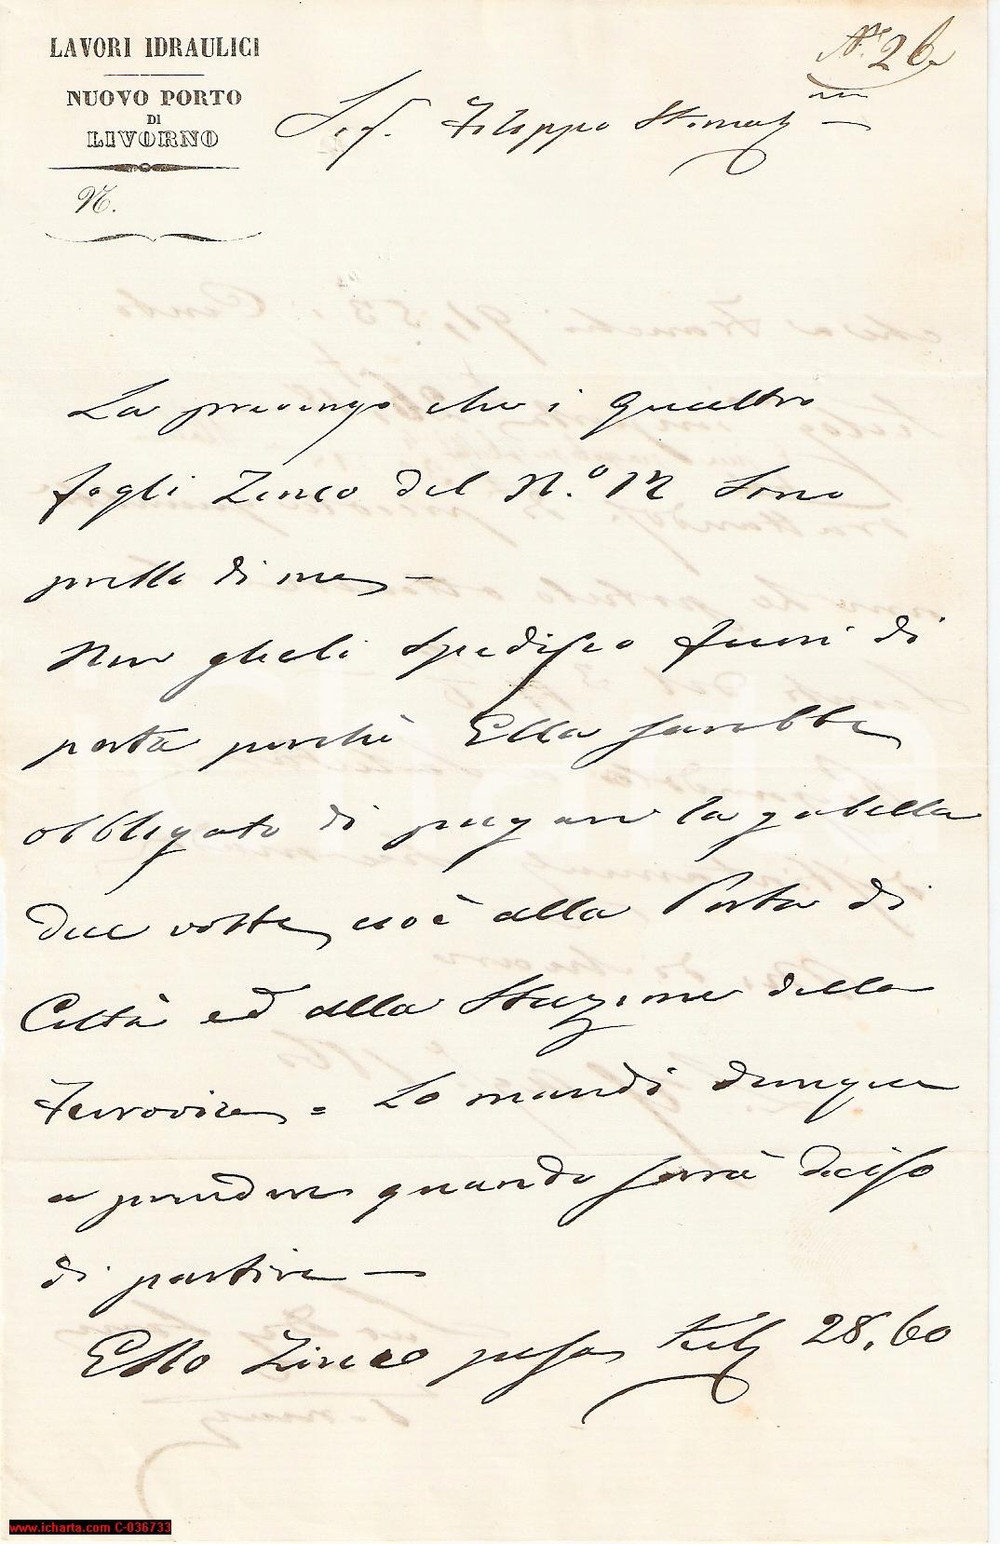 LAVORI IDRAULICI
NUOVO PORTO
DI
LIVORNO
N.
N.° 26
Sig. Filippo
La prevengo che i quattro
fogli Zinco del N.° 12 sono
presso di me —
Non glieli spedisco fuori di
porta perchè Ella sarebbe
obbligato di pagare la gabella
due volte, cioè alla Porta di
Città ed alla Stazione della
Ferrovia = Lo mandi dunque
a prendere quando sarà deciso
di partire —
Esso Zinco pesa Kilg 28,60
www.icharta.com C-036733